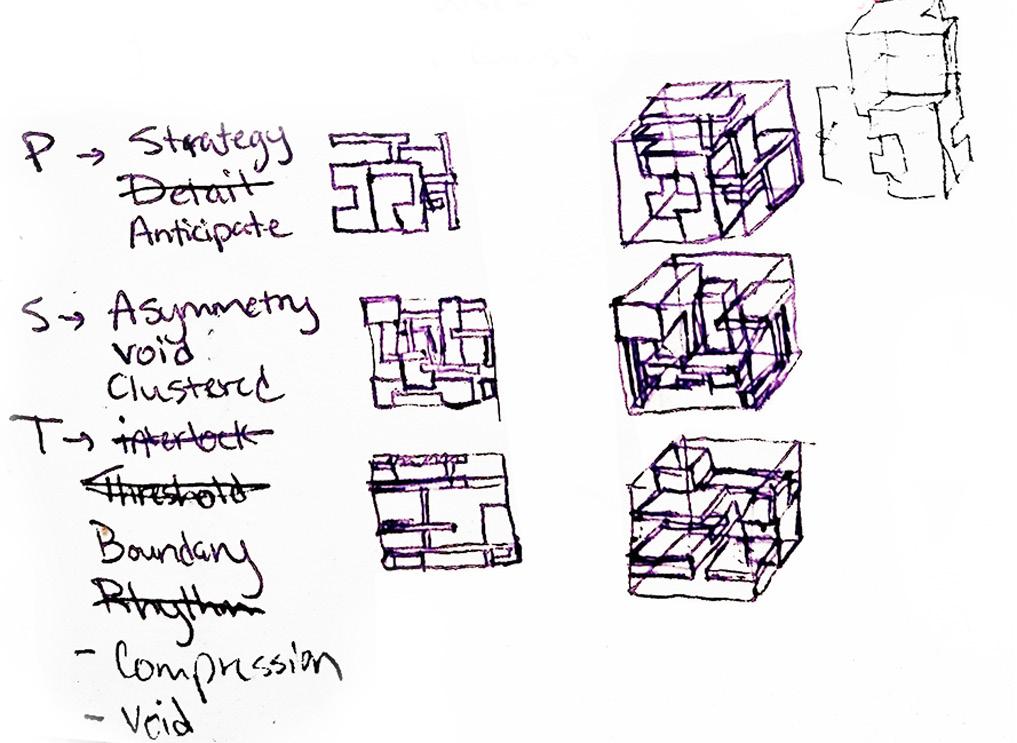 P → Strategy
Detail
Anticipate
S → Asymmetry
void
Clustered
T → interlock
Threshold
Boundary
Rhythm
- Compression
- Void